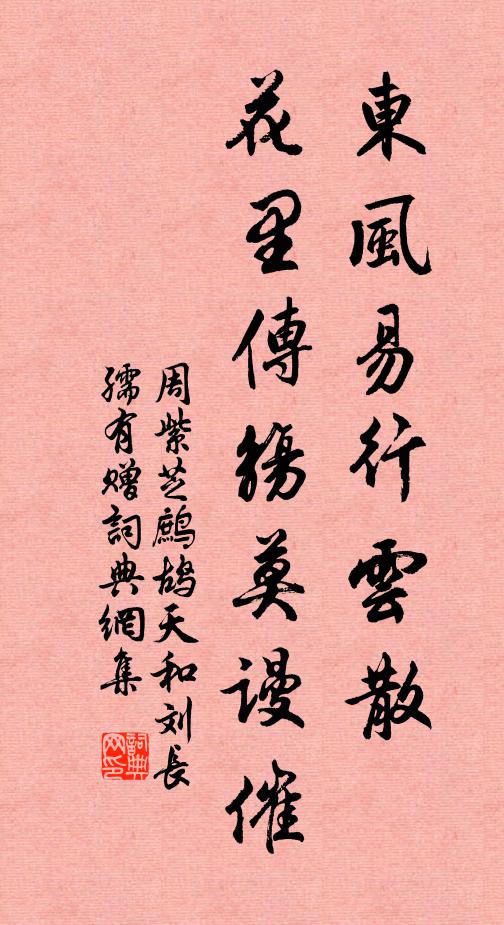 東風易行雲散
花里傳觴莫謾催
周紫芝鷓鴣天和刘長
孺有贈詞典網集
詞典網印